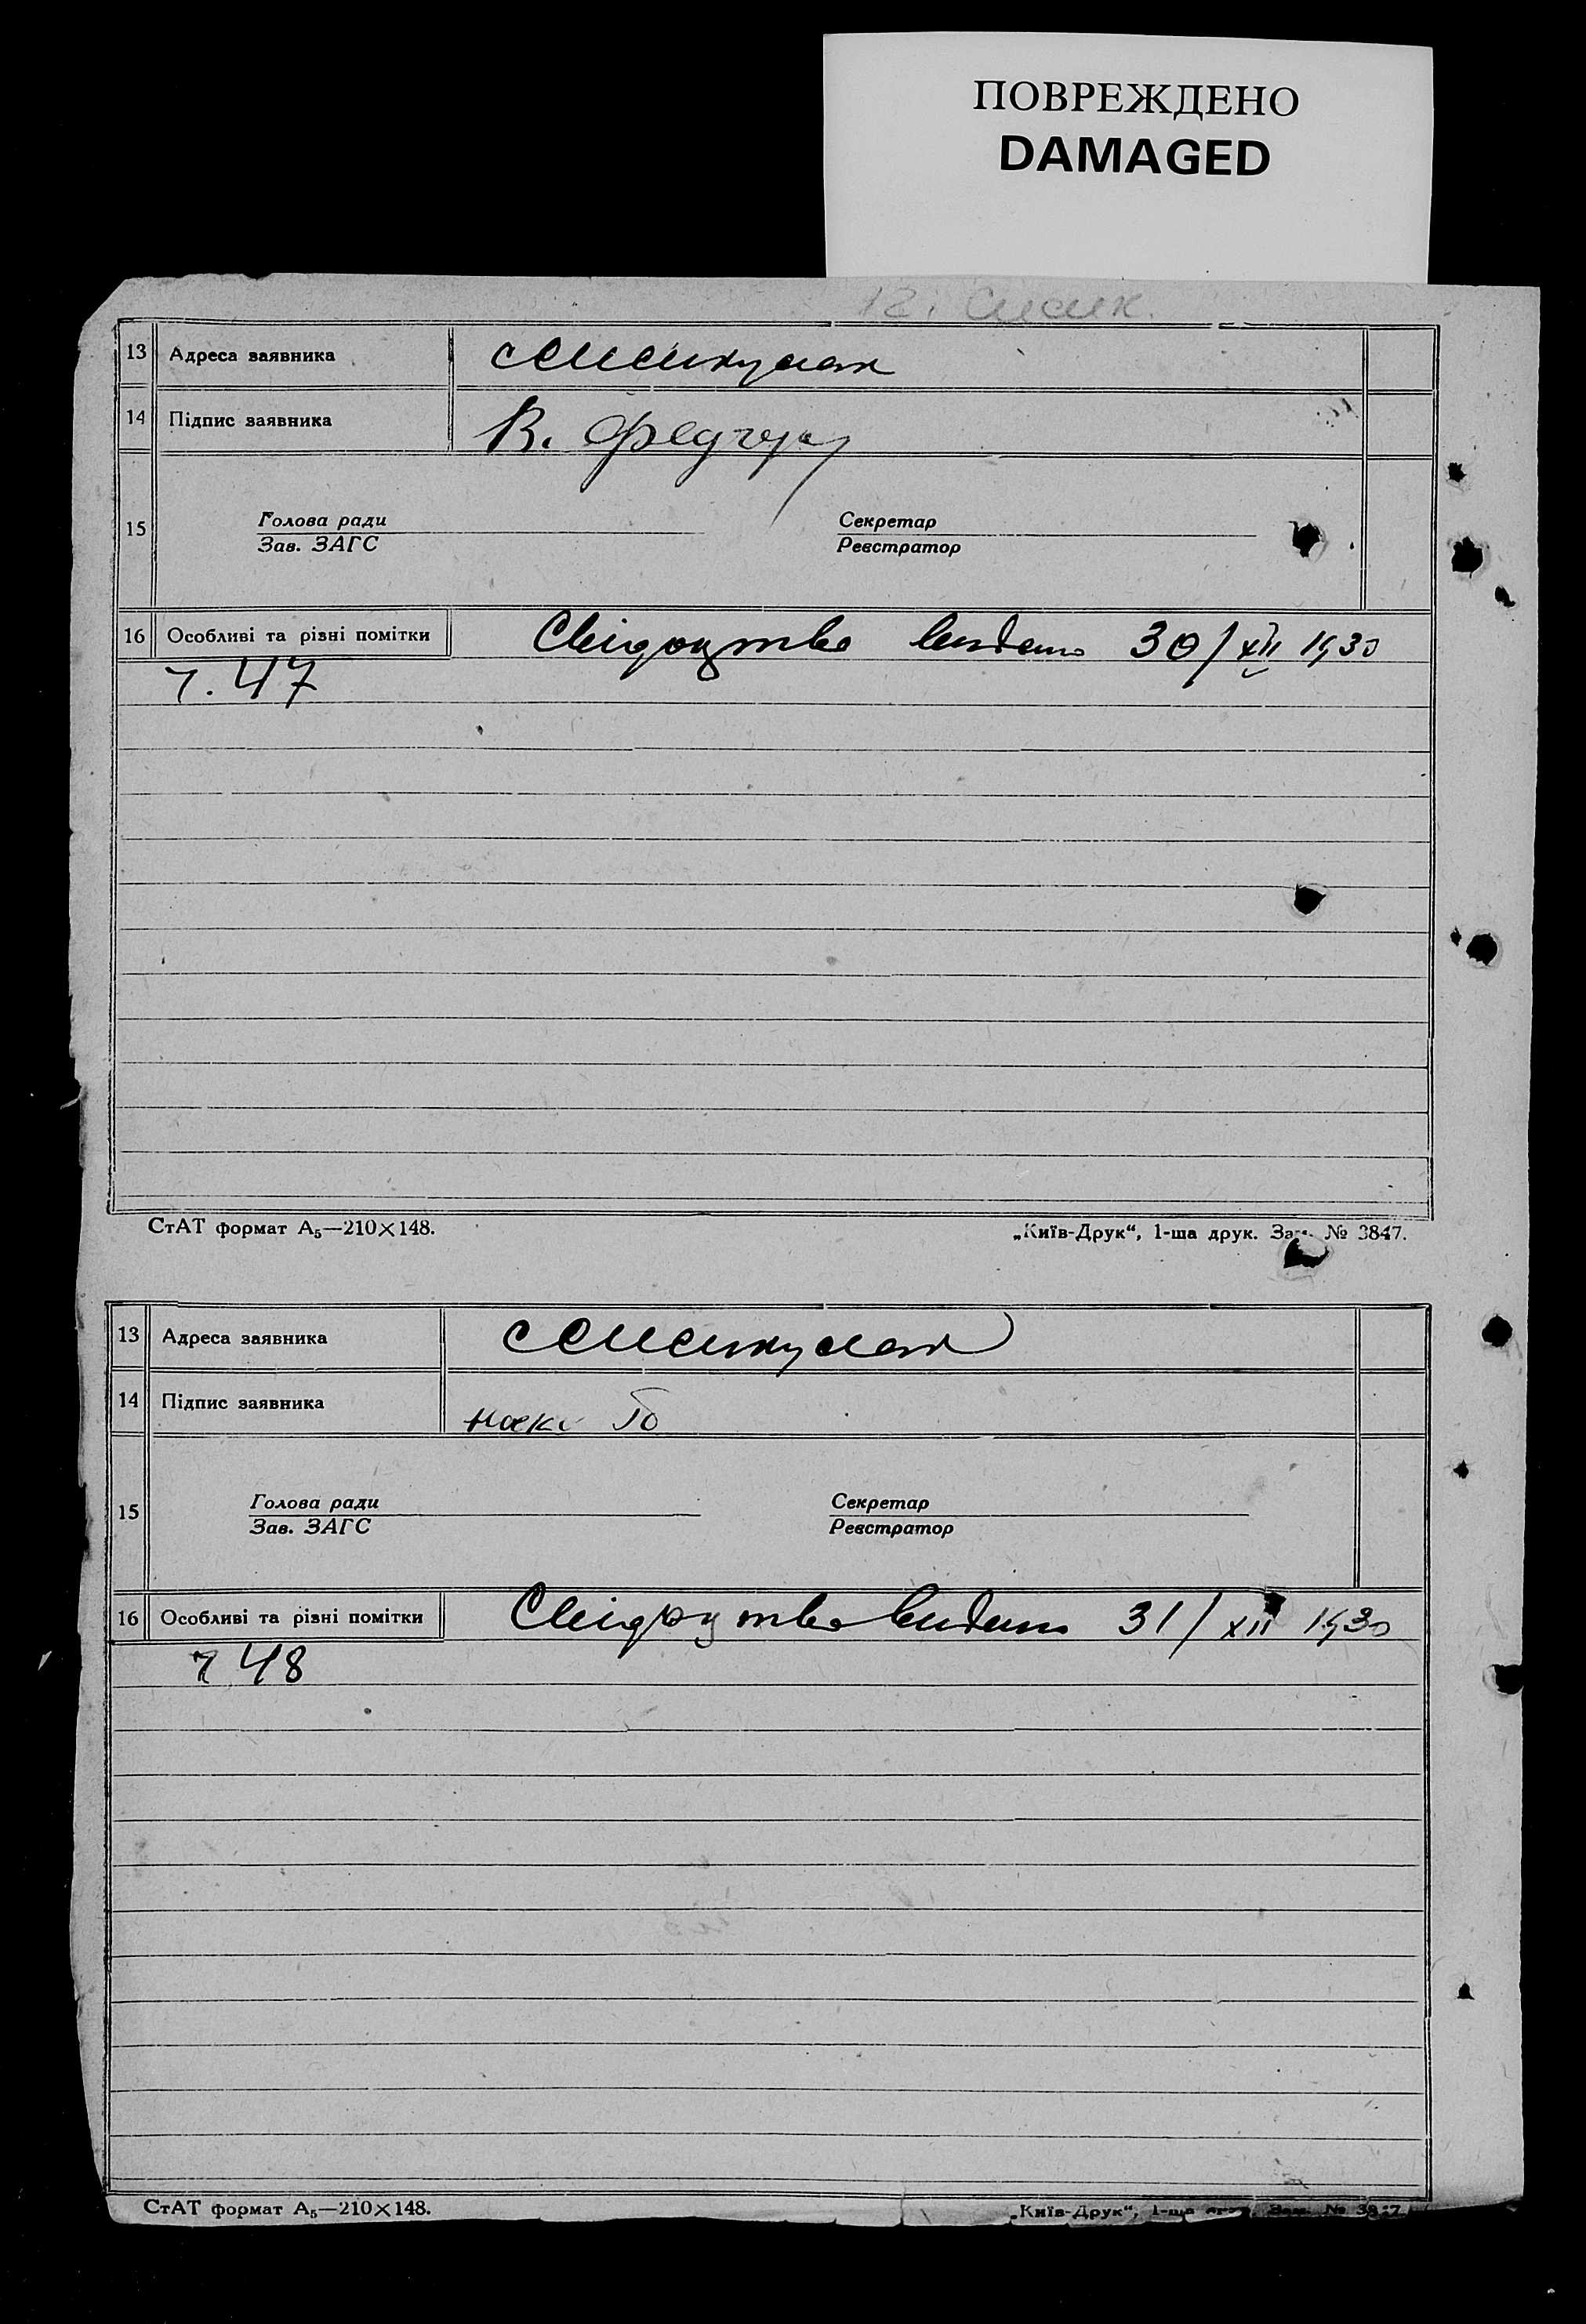 ПОВРЕЖДЕНО
DAMAGED
13 Адреса заявника
14 Підпис заявника В.
15 Голова ради Секретар
Зав. ЗАГС Реєстратор
16 Особливі та різні помітки Свідоцтво видано 30/XII 1930
ч. 47
СтАТ формат А5—210×148. „Київ-Друк“, 1-ша друк. Зам. № 3847.
13 Адреса заявника
14 Підпис заявника
15 Голова ради Секретар
Зав. ЗАГС Реєстратор
16 Особливі та різні помітки Свідоцтво видано 31/XII 1930
ч 48
СтАТ формат А5—210×148. „Київ-Друк“, 1-ша